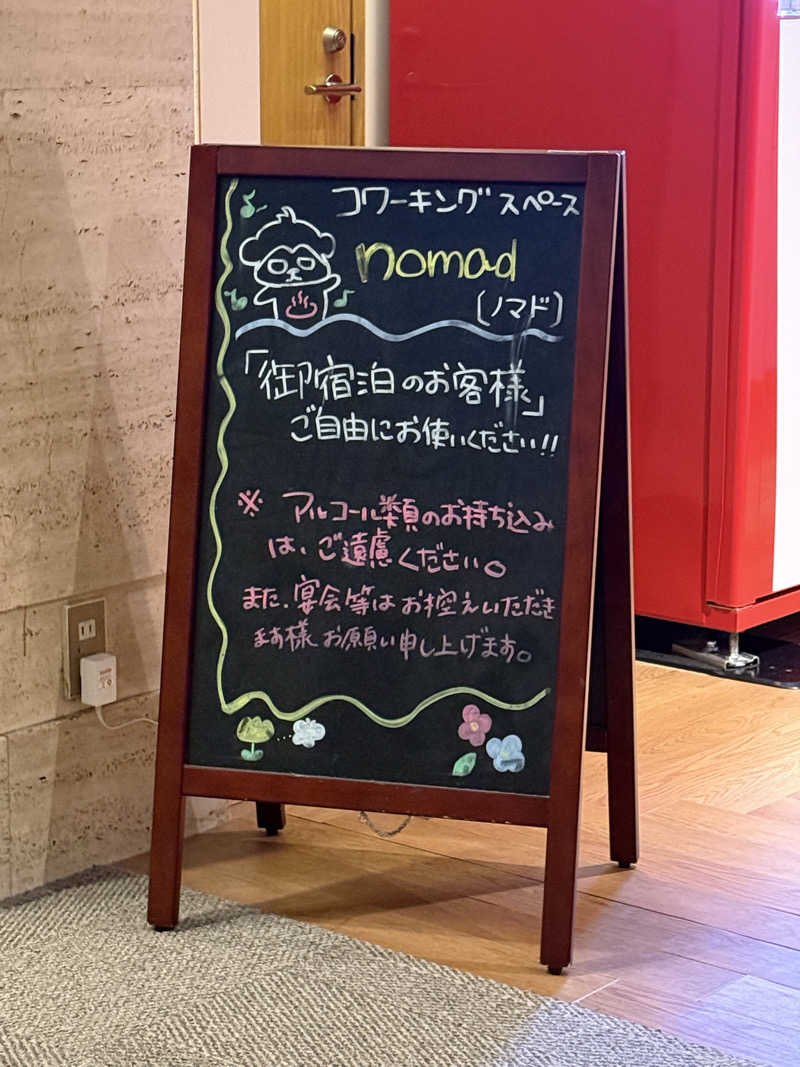 コワーキングスペース
nomad
(ノマド)
「御宿泊のお客様」
ご自由にお使いください!!
※ アルコール類のお持ち込み
は、ご遠慮ください。
また、宴会等はお控えいただき
ます様お願い申し上げます。